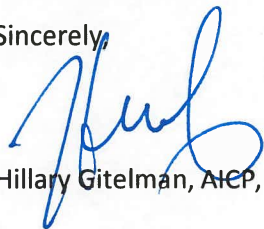 Sincerely,
Hillary Gitelman, AICP,